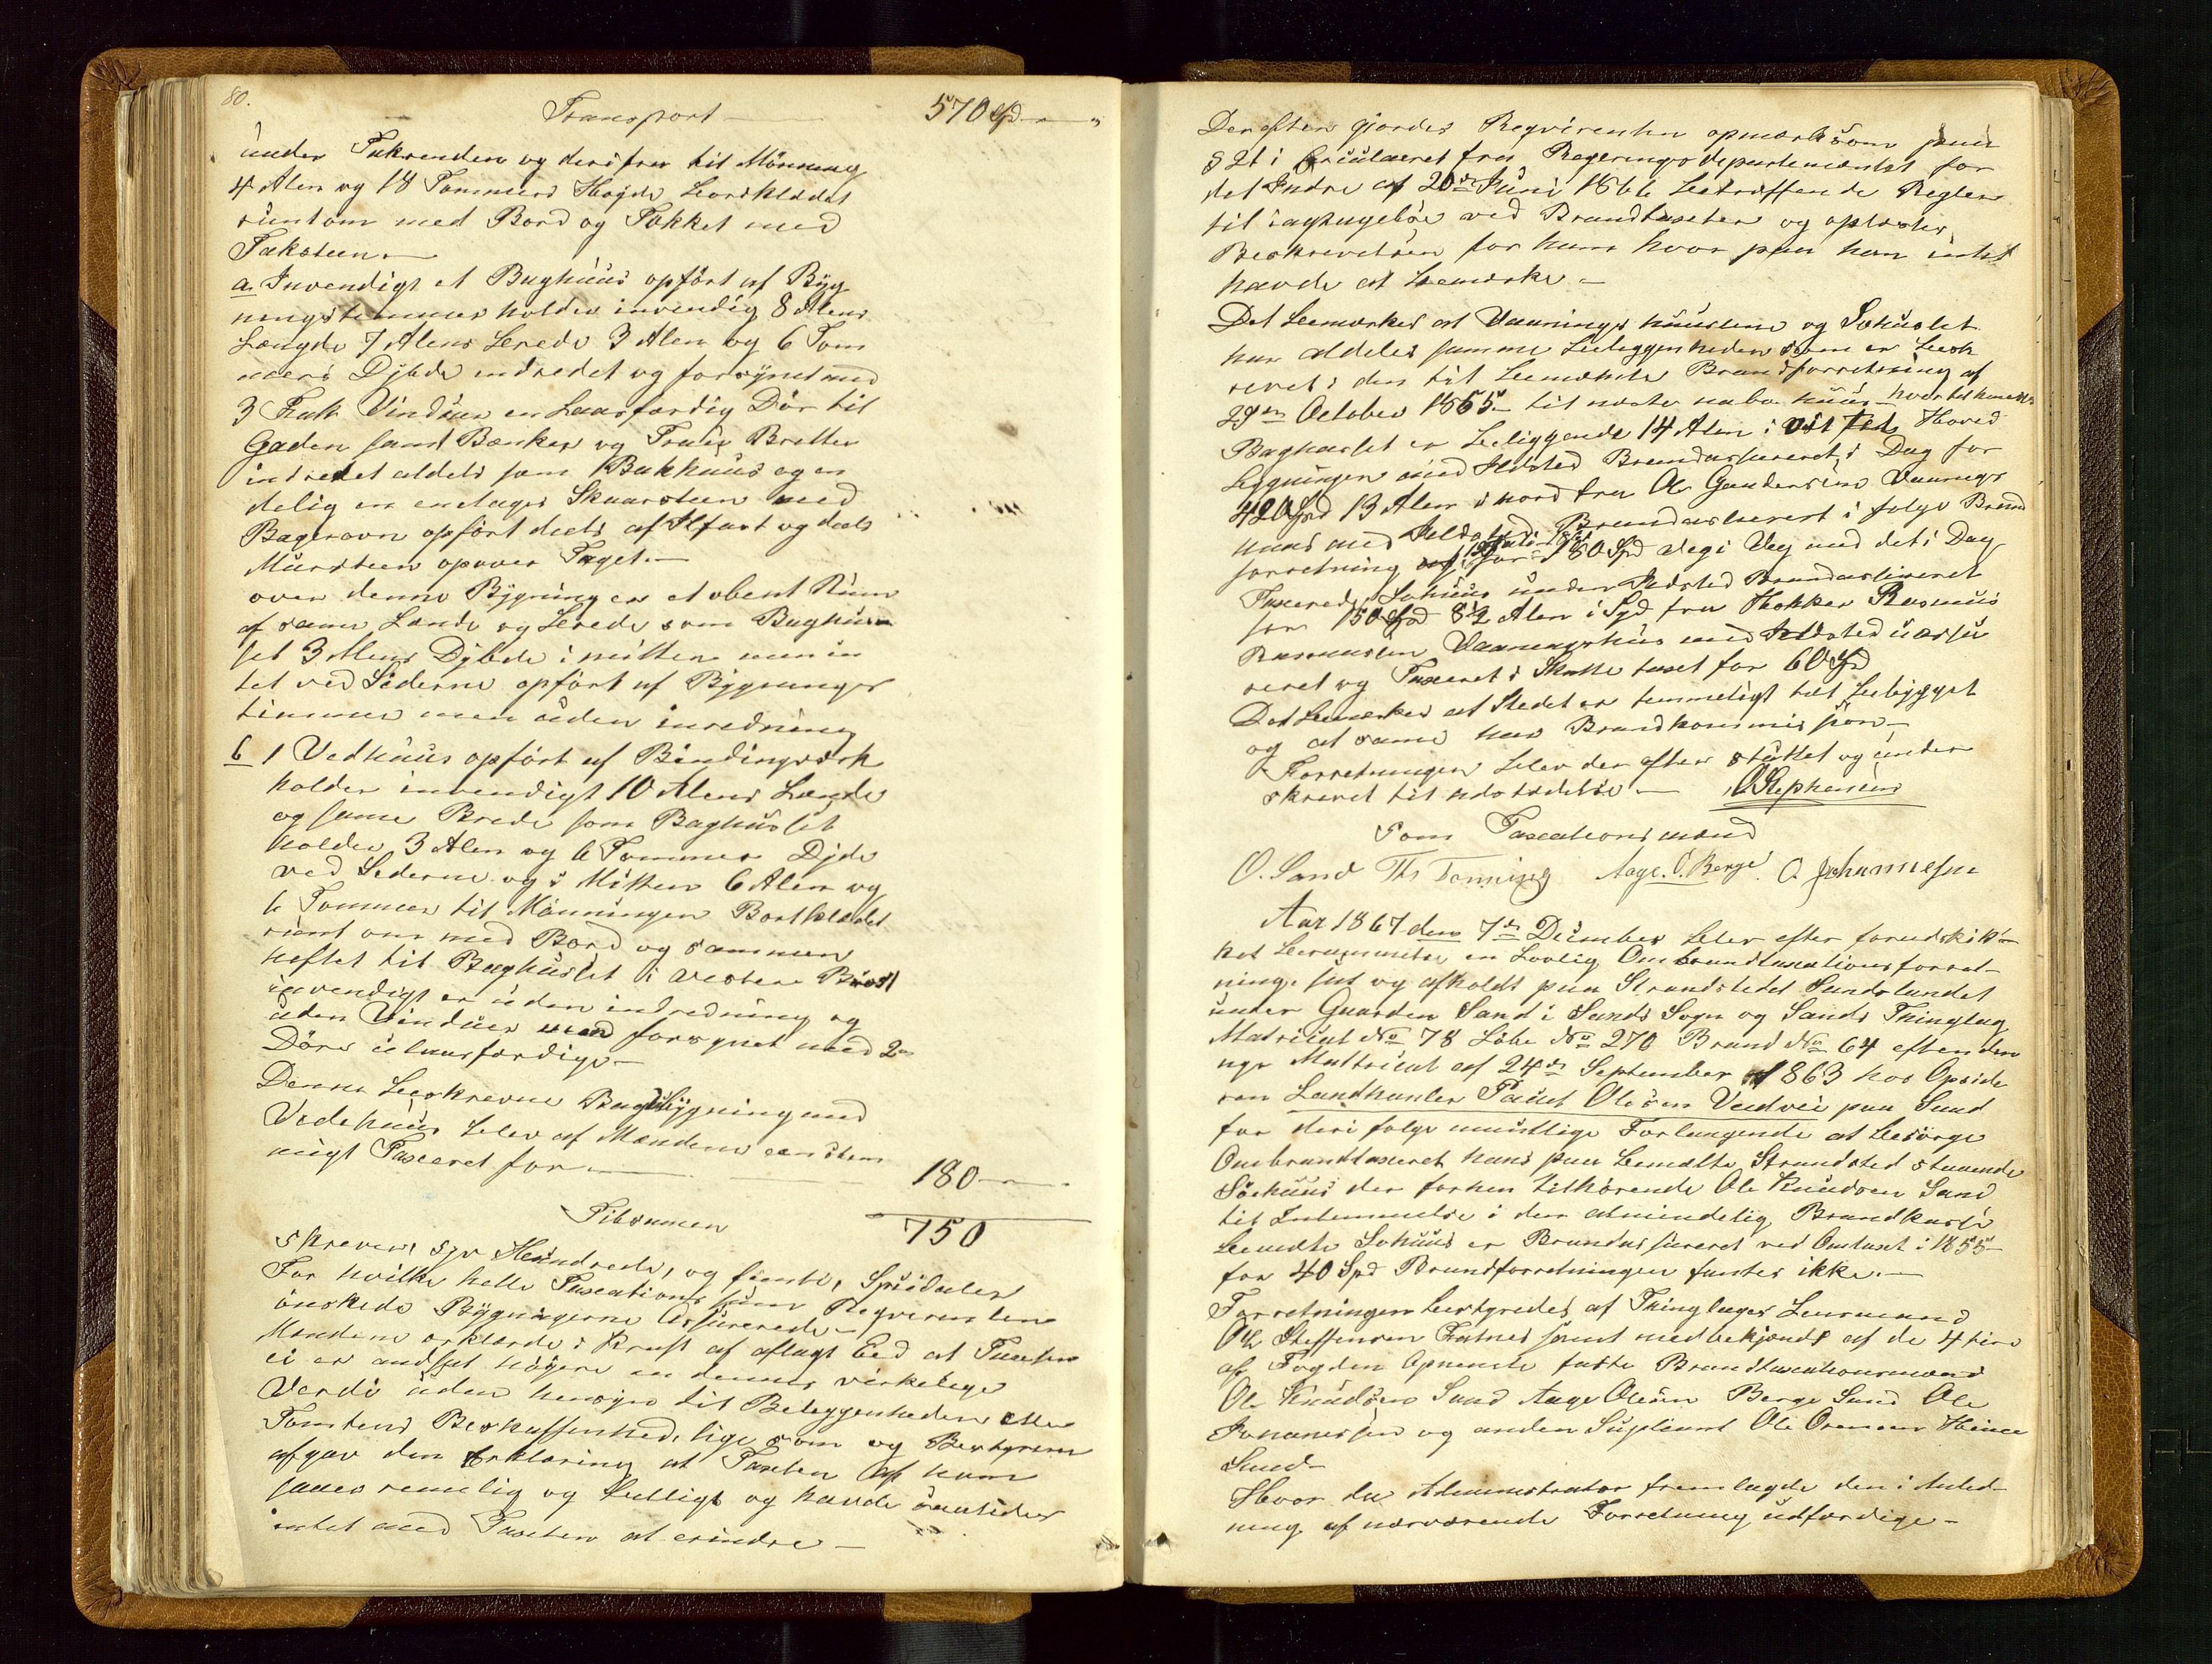 80.
Transport — 570 Spd — "
under Takrenden og derifra til Mönning
4 Alen og 18 Tommers Høyde bordklædet
runtom med Bord og Tækket med
Taksteen. —
a. Invendigt et Baghuus opfört af Byg
ningstømmer holder invendig 8 Alens
Længde 7 Alens brede 3 Alen og 6 Tom
mers Dÿbde indredet og forsÿnet med
3 Vinduer en Laasfærdig Dör til
Gaden samt Bænker og Bretter
indredet aldels som 1 Bakhuus og en
delig en enetages Skaarsteen med
Bagerovn opfört deels af og deels
Muursteen opover Taget. —
over denne Bÿgning er et obent Rum
af samme Lende og brede som Baghuu
set 3 Alens Dÿbde i mitten men in
tet ved Siderne opfört af Bÿgnings
timmer men uden inredning
b 1 Vedhuus opfört af Bindingværk
holder invendigt 10 Alens Lengde
og samme Brede som Baghuuset
holder 3 Alen og 6 Tommer Djde
ved Siderne og i Mitten 6 Alen og
6 Tommer til Mönningen Bortklædet
runt om med Bord og sammen
heftet til Baghuuset i vestere
invendigt er uden indredning og
uden Vinduer men forsÿnet med 2
Döre ulaasfærdige —
Denne beskrevne Bagbÿgning med
Vedehuus blev af Mændene eenstem
migt Taxeret for — 180 —
Tilsammen 750
skrever, sÿv Hundrede, og femti, Spesidaler
For hvilke helle Taxations sum Reqvirenten
önskede Bÿgningerne Assurerede —
Mændene erklærde i Kraft af aflagt Eed at Taxten
ei er andsat högere en dennes virkelige
Verdi uden hensÿn til Beleggenheden eller
Tomtens Beskaffenhed, lige som og Bestyreren
afgav den Erklæring at Taxten af ham
saaes remelig og billigt og havde
intet med Taxten at erindre —
Derefter gjordes Reqvirenten opmærksom paa
§ 21 i Circulæret fra Regjeringsdepartementet for
det Indre af 20de Juni 1866 betreffende Regler
til ved Brandtaxter og oplæstes
Beskrivelsen for ham hvor paa han intet
havde at bemærke —
Det bemærkes at Vaanings huusene og Söhuuset
har aldeles samme beleggenheder som er besk
revet i den til bemælte Brandforretning af
24de October 1865 — til næste nabo huus
Baghuuset er beliggende 14 Alen i Hoved
bygningen med Ildsted Brandassureret i Dag for
420 Spd 13 Alen i nord fra Ole Gundersens Vaanings
huus med Ildsted Brandassurert i følge Brand
forretning for 180 Spd veg i Veg med det i Dag
Taxerede Söhuus uden Ildsted Brandassureret
for 150 Spd 8½ Alen i Sÿd fra Hokker Rasmus
Rasmussen Vaaningshuus med Ildsted uassu
reret og Taxeret i Skatte taxt for 60 Spd
Det bemærkes at Stedet er temmeligt tæt bebÿgget
og at samme har Brandkommission —
Forretningen blev der efter sluttet og under
skrevet til udstædelse — O Stephensen
Som Taxationsmænd
O. Sand Ths Tonning Aage. O. Berge O Johannesen
Aar 1867 den 7de December blev efter forudskik
ket berammelse en Lovlig Ombrandtaxationsforret-
ning. sat og afholdt paa Strandstedet Sandslandet
under Gaarden Sand i Sands Sogn og Sands Thinglag
Matricul No 78 Löbe No 270 Brand No 64 efter den
nye Mattricul af 24de September 1863 hos Opside
ren Landhanler Paul Olesen Vadvei paa Sand
for i følge munttlige Forlangende at besörge
Ombrandtaxeret hans paa bemælte Strandsted staaende
Söehuus der forhen tilhörende Ole Knudsen Sand
til Indemmelse i den almindelig Brandkasse
bemælte Söhuus er Brandassureret ved Omtaxt i 1855
for 40 Spd Brandforretningen fantes ikke. —
Forretningen bestyredes af Thinglages Lensmand
Ole Steffensen samt med bekjendt af de 4 hero
af Fogden Opnevnte faste Brandtaxationsmænd
Ole Knudsen Sand Aage Olesen Berge Sand Ole
Johanessen og anden Supleant Ole
Sand —
Hvor da Administrator fremlagde den i Anled
ning af nærværende Forretning udfærdige —